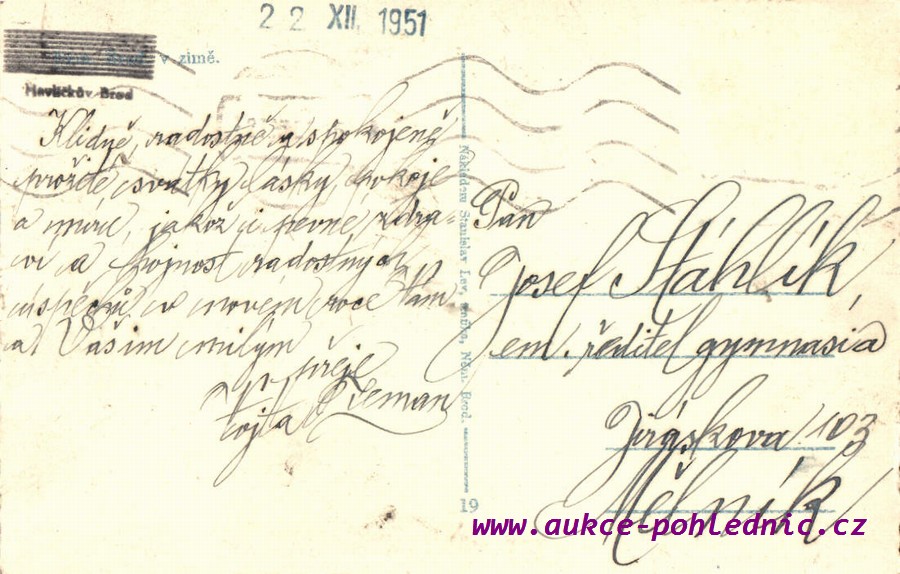 22 XII. 1951
v zimě.
Havlíčkův Brod
Klidně, radostně a spokojeně
prožité svátky lásky pokoje
a míru, jakož i pevné zdra-
ví a hojnost radostných
úspěchů v novém roce Vám
a Vašim milým
přeje
Vojta Zeman
Nákladem Stanislav Něm. Brod.
19
Pan
Josef Stáhlík,
em. ředitel gymnasia
Jiráskova 103
Mělník
www.aukce-pohlednic.cz